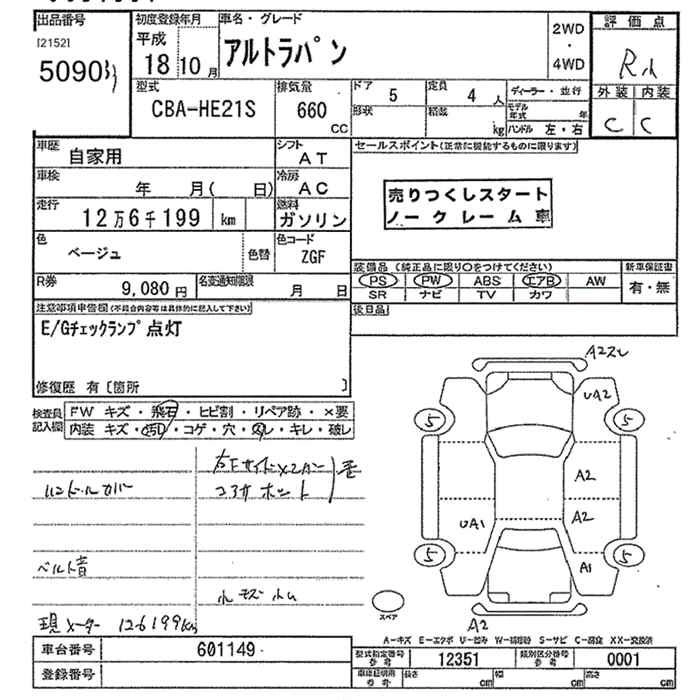 出品番号 初度登録年月 車名・グレード 2WD ・ 4WD 評価点
[2152] 平成 アルトラパン
5090 18 10 月
外装 内装
C C
型式 排気量 ドア 5 定員 4 人 ディーラー・並行
CBA-HE21S 660 cc 形状 積載 kg モデル年式 年
ハンドル 左・右
車歴 自家用 シフト AT セールスポイント(正常に機能するものに限ります)
車検 年 月( 日) 冷房 AC
売りつくしスタート
ノークレーム車
走行 12万6千199 km 燃料 ガソリン
色 ベージュ 色替 色コード ZGF
装備品(純正品に限り○をつけてください) 新車保証書
PS PW ABS エアB AW 有・無
SR ナビ TV カワ
R券 9,080円 名変通知期限 月 日
後日品
注意事項申告欄(不具合内容等は具体的に記入して下さい)
E/Gチェックランプ点灯
修復歴 有〔箇所 〕
検査員記入欄
FW キズ・飛石・ヒビ割・リペア跡・×要
内装 キズ・汚れ・コゲ・穴・スレ・キレ・破レ
ハンドルカバー
ベルト音
現メーター 126199km
A2
UA2
5 5
A2
A2
UA1
5 5
A1
スペア
A2
A-キズ E-エクボ U-凹み W-補修跡 S-サビ C-腐食 XX-交換済
車台番号 601149
登録番号
型式指定番号 参考 12351 類別区分番号 参考 0001
車庫証明用 参考 長さ cm 幅 cm 高さ cm